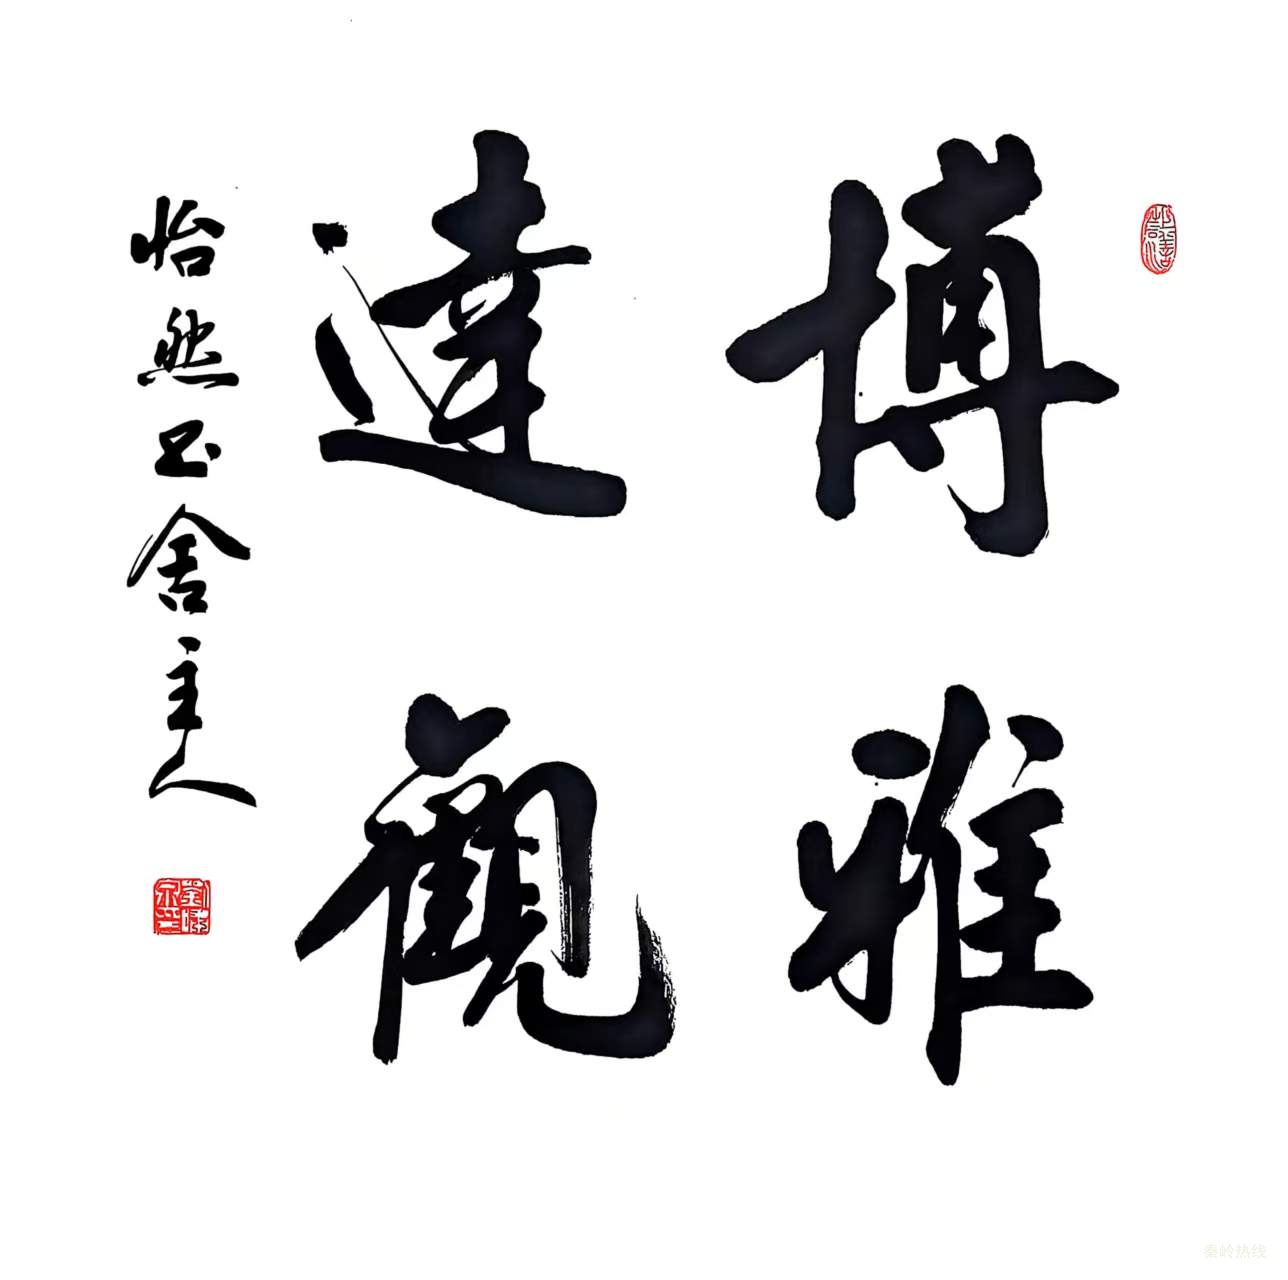 博雅
達觀
怡然玉舍主人
秦岭热线